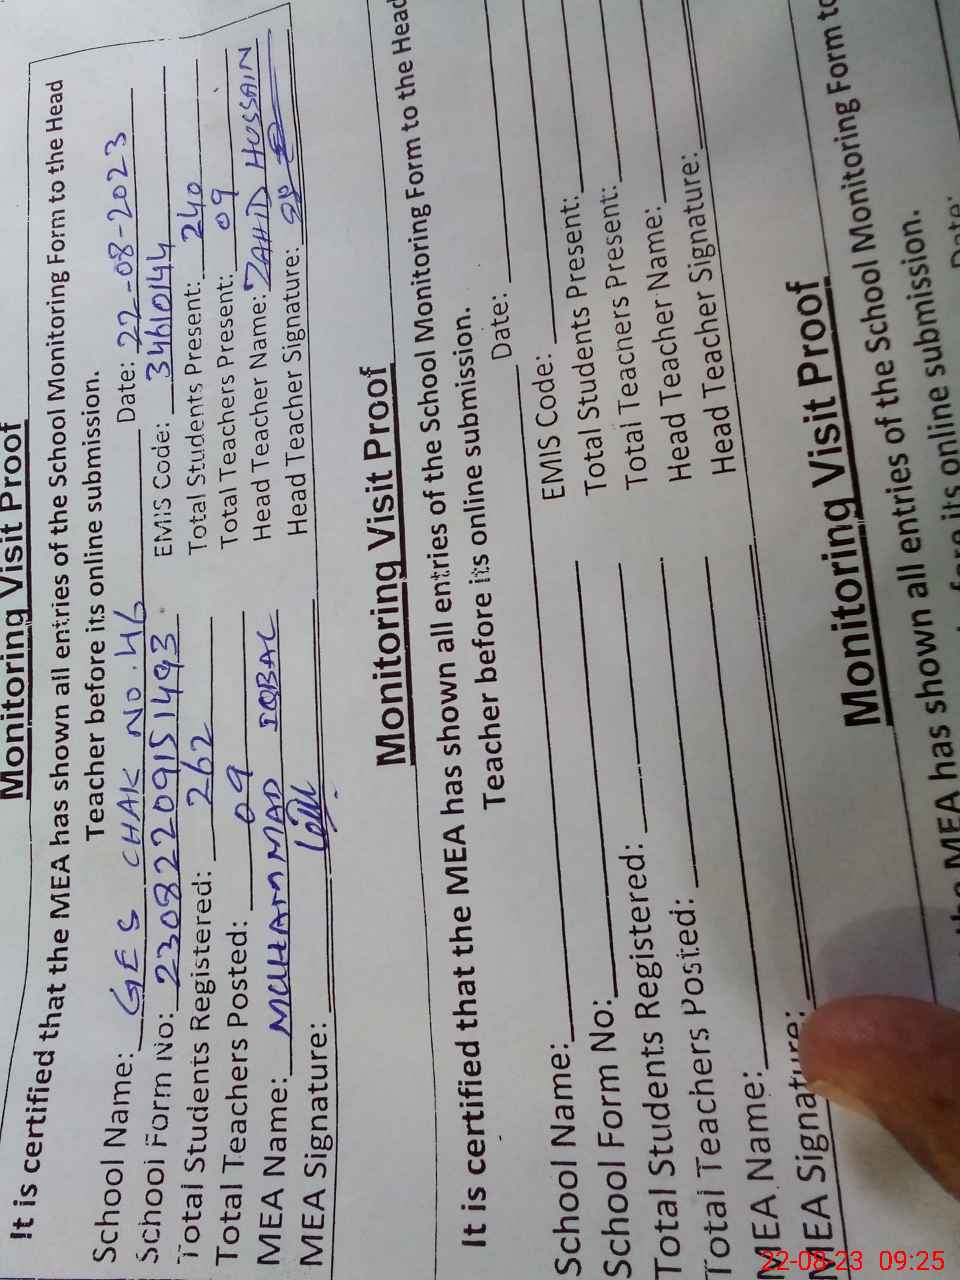 Monitoring Visit Proof
It is certified that the MEA has shown all entries of the School Monitoring Form to the Head
Teacher before its online submission.
School Name: GES CHAK NO.46 Date: 22-08-2023
School Form No: 23082209151493 EMIS Code: 34610144
Total Students Registered: 262 Total Students Present: 240
Total Teachers Posted: 09 Total Teachers Present: 09
MEA Name: MUHAMMAD IQBAL Head Teacher Name: ZAHID HUSSAIN
MEA Signature: Head Teacher Signature:
Monitoring Visit Proof
It is certified that the MEA has shown all entries of the School Monitoring Form to the Head
Teacher before its online submission.
School Name: Date:
School Form No: EMIS Code:
Total Students Registered: Total Students Present:
Total Teachers Posted: Total Teachers Present:
MEA Name: Head Teacher Name:
MEA Signature: Head Teacher Signature:
Monitoring Visit Proof
the MEA has shown all entries of the School Monitoring Form to
its online submission.
Date:
22-08-23 09:25